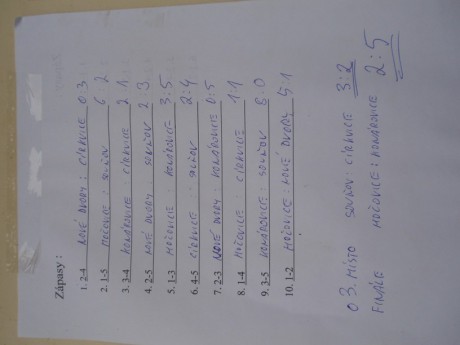 Zápasy :
1. 2-4 NOVÉ DVORY : CÍRKVICE 0:3
2. 1-5 MOČOVICE : SOUŇOV 6:2
3. 3-4 KOMÁROVICE : CÍRKVICE 2:1
4. 2-5 NOVÉ DVORY : SOUŇOV 2:3
5. 1-3 MOČOVICE : KOMÁROVICE 3:5
6. 4-5 CÍRKVICE : SOUŇOV 2:4
7. 2-3 NOVÉ DVORY : KOMÁROVICE 0:5
8. 1-4 MOČOVICE : CÍRKVICE 1:1
9. 3-5 KOMÁROVICE : SOUŇOV 6:0
10. 1-2 MOČOVICE : NOVÉ DVORY 5:1
O 3. MÍSTO SOUŇOV : CÍRKVICE 3:2
FINÁLE MOČOVICE : KOMÁROVICE 2:5